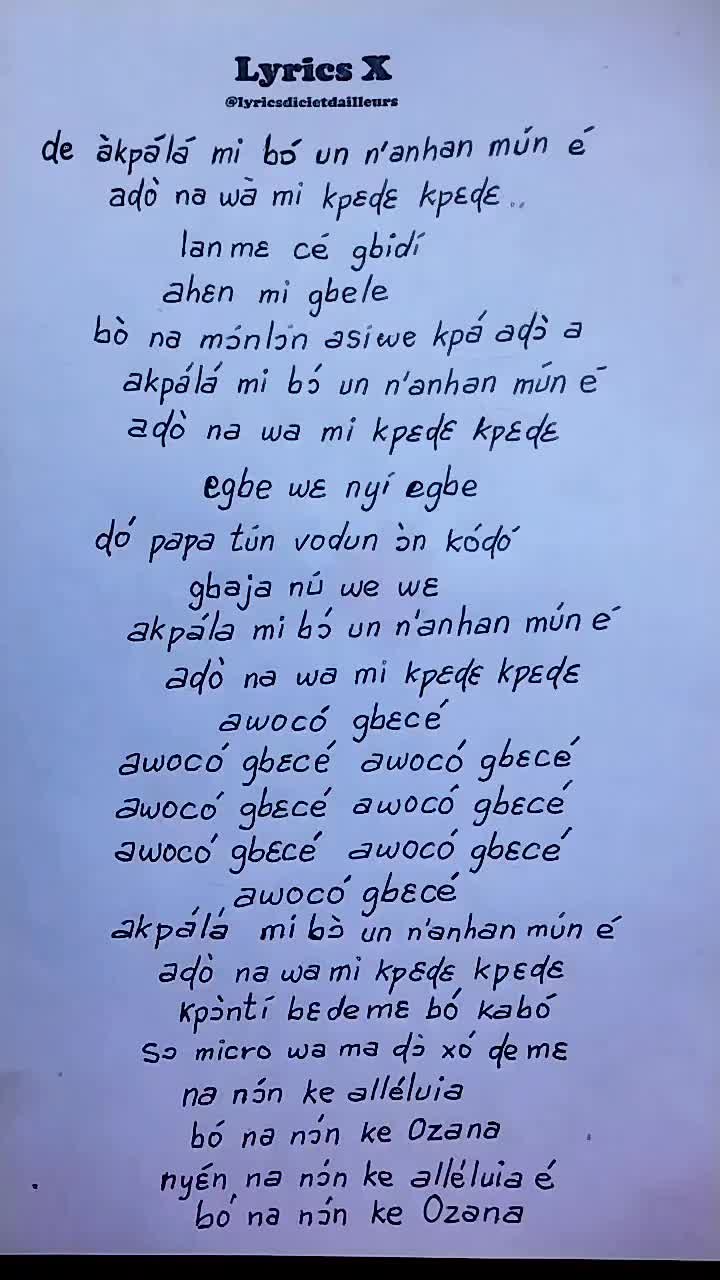 Lyrics X
@lyricsdicietdailleurs
de àkpálá mi bɔ́ un n'anhan mún é
adò na wà mi kpɛɖɛ kpɛɖɛ..
lan mɛ cé gbidí
ahɛn mi gbele
bò na mɔ́nlɔ́n asiwe kpá aɖɔ̀ a
akpálá mi bɔ́ un n'anhan mún é
adò na wa mi kpɛɖɛ kpɛɖɛ
egbe wɛ nyí egbe
dó papa tún vodun ɔ̀n kóɖó
gbaja nú we wɛ
akpála mi bɔ́ un n'anhan mún é
aɖò na wa mi kpɛɖɛ kpɛɖɛ
awocó gbɛcé
awocó gbɛcé awocó gbɛcé
awocó gbɛcé awocó gbɛcé
awocó gbɛcé awocó gbɛcé
awocó gbɛcé
akpálá mi bɔ̀ un n'anhan mún é
aɖò na wa mi kpɛɖɛ kpɛɖɛ
kpɔ̀ntí bɛ ɖe mɛ bó kabó
sɔ micro wa ma ɖɔ̀ xó ɖe mɛ
na nɔ́n ke alléluia
bó na nɔ́n ke Ozana
nyɛ́n na nɔ́n ke alléluia é
bó na nɔ́n ke Ozana